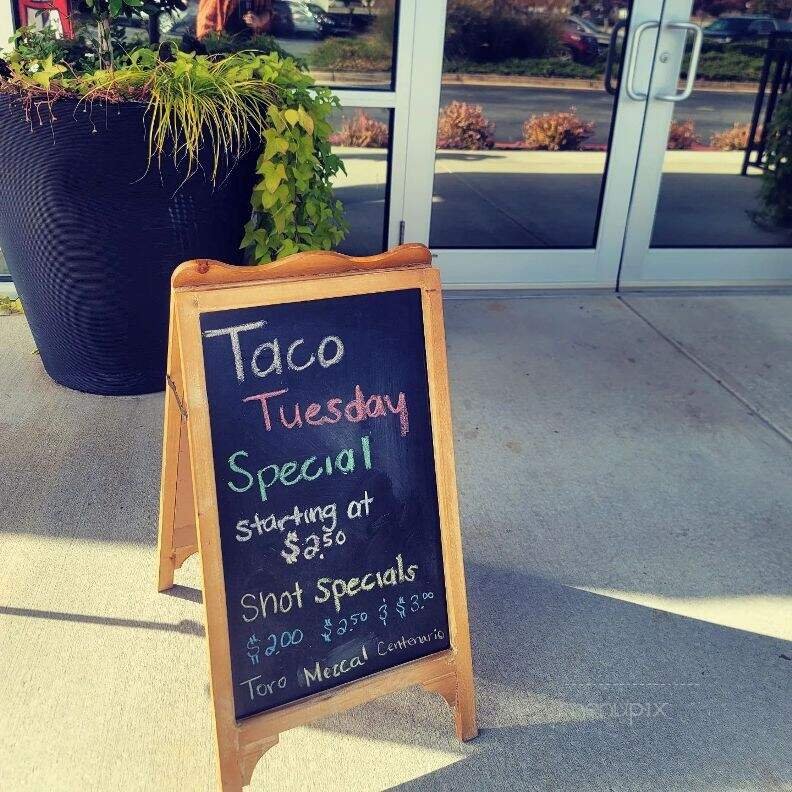 Taco
Tuesday
Special
starting at
$2.50
Shot Specials
$2.00 $2.50 & $3.00
Toro Mezcal Centenario
menupix